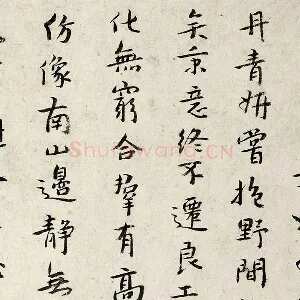 丹青妍嘗抱野閒
矣秉意終不遷良工
化無窮合羣有高
仿像南山邊靜無
Shufawang.CN